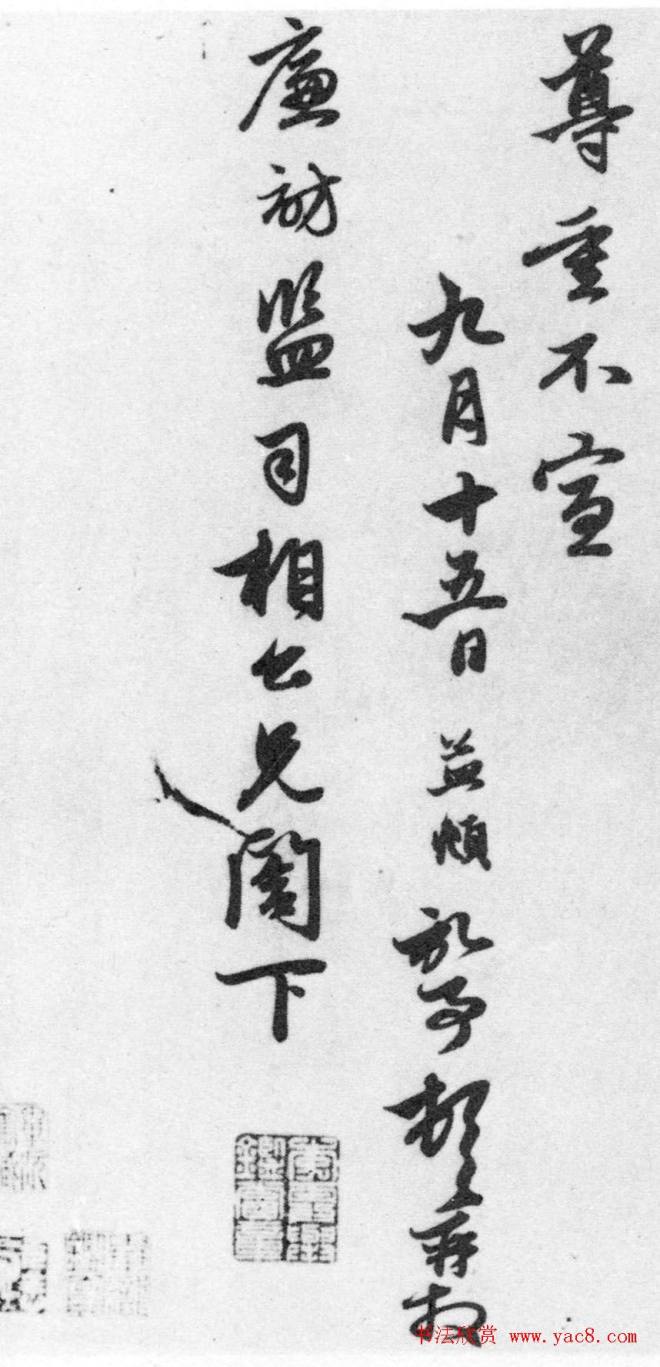 尊重不宣
九月十五日 頓首再拜
廉訪監司相公兄閣下
书法欣赏 www.yac8.com